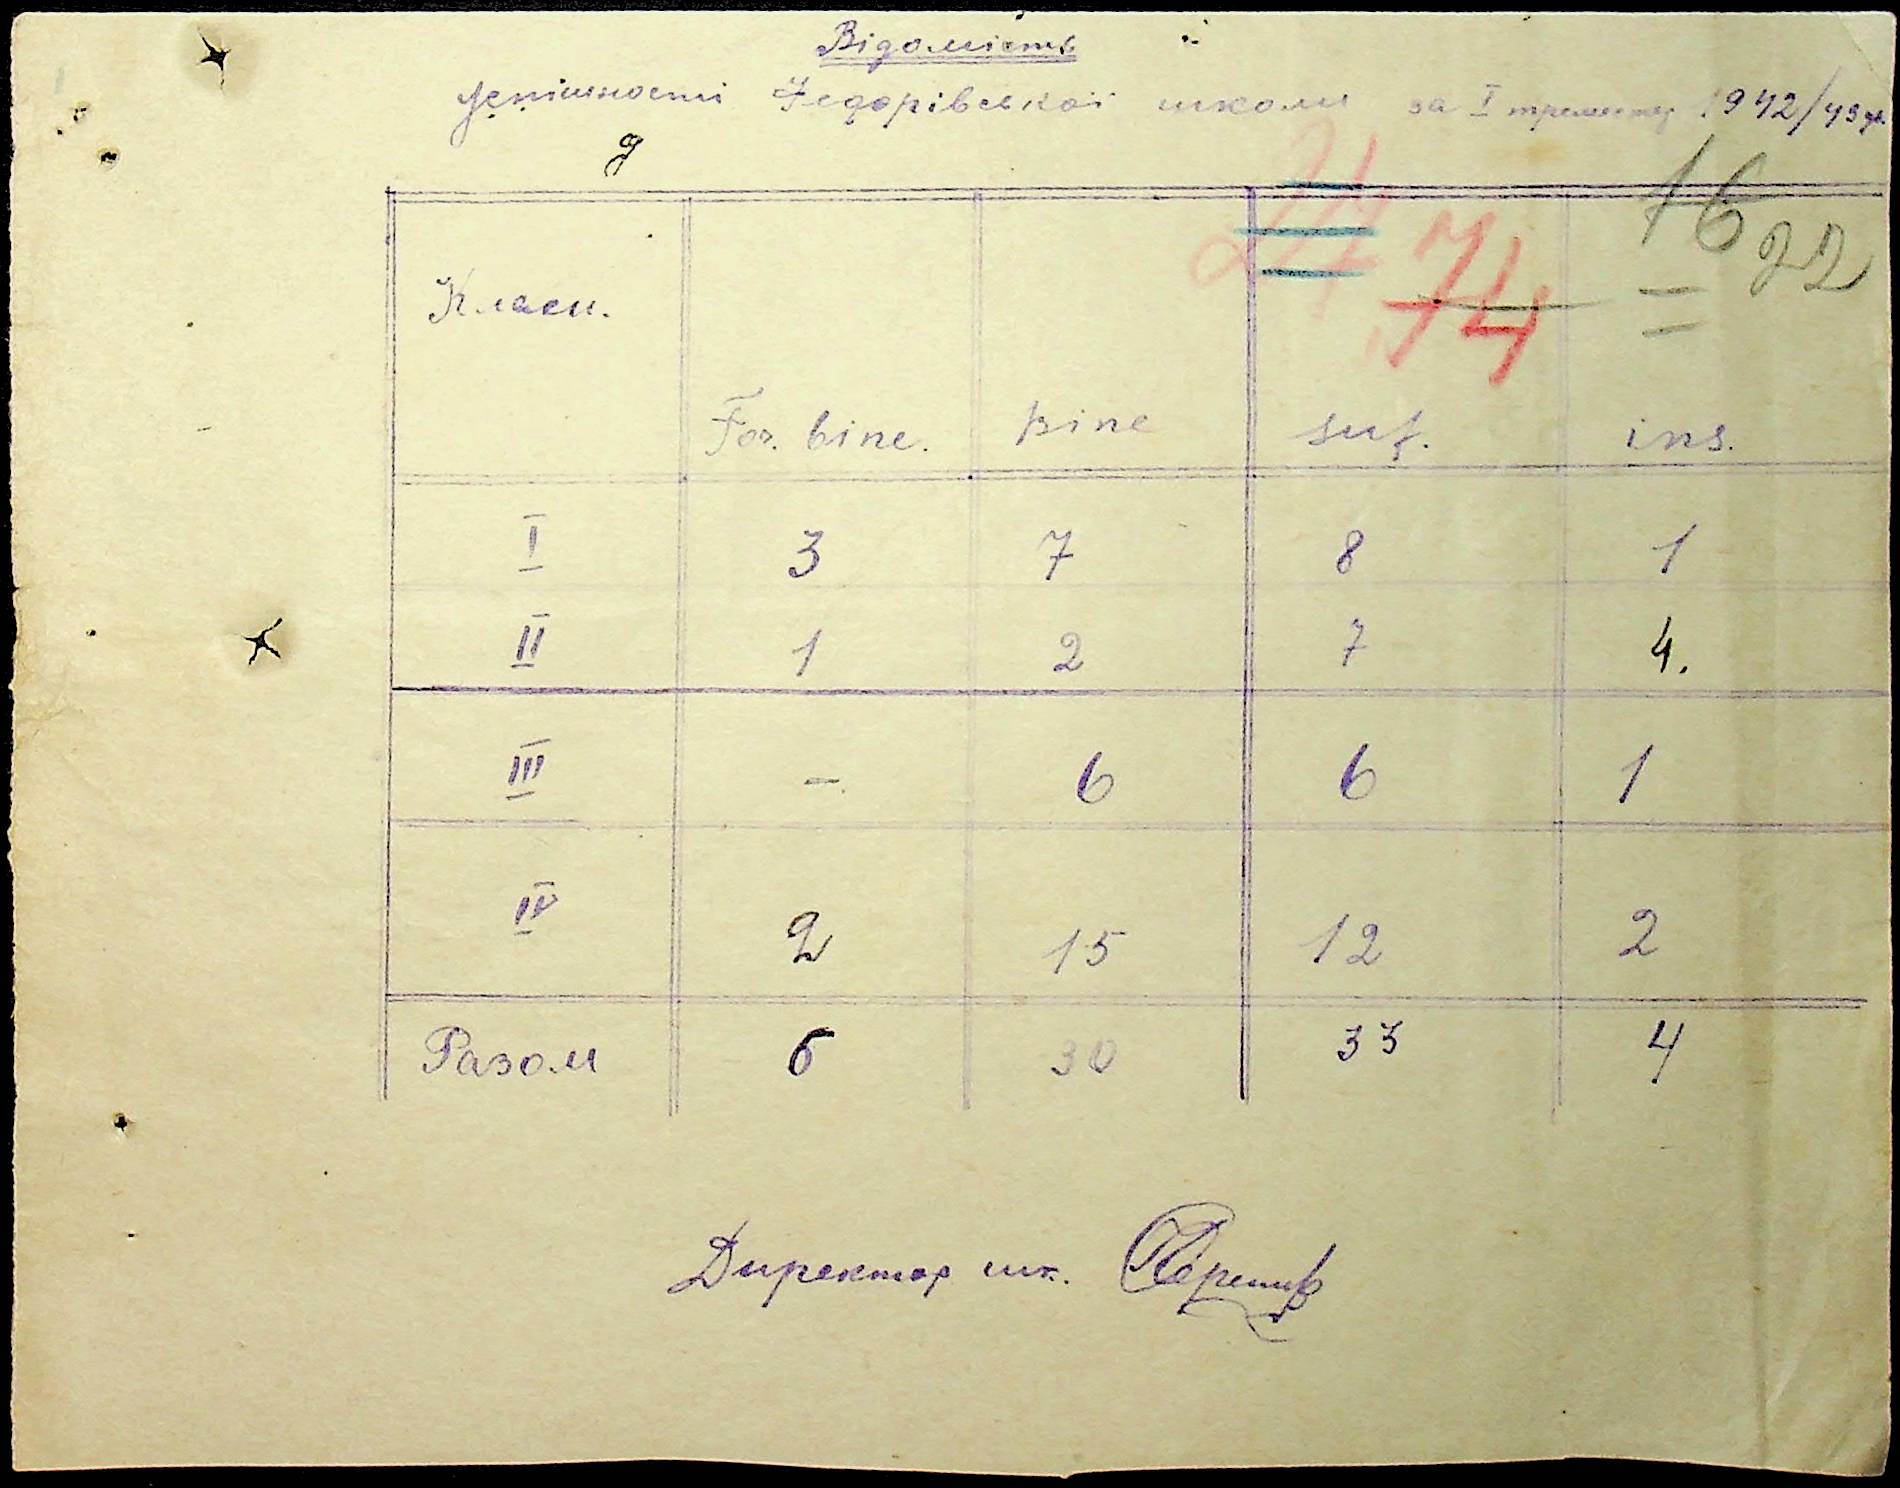 Відомість
успішности Федорівської школи за I триместр 1942/43 р.
74
16 22
Класи.
For. bine. bine suf. ins.
I 3 7 8 1
II 1 2 7 4.
III – 6 6 1
IV 2 15 12 2
Разом 6 30 33 4
Директор шк.